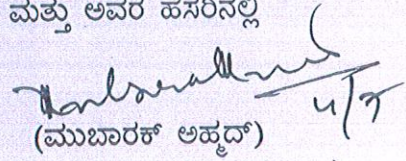 ಮತ್ತು ಅವರ ಹೆಸರಿನಲ್ಲಿ
4/7
(ಮುಬಾರಕ್ ಅಹ್ಮದ್)